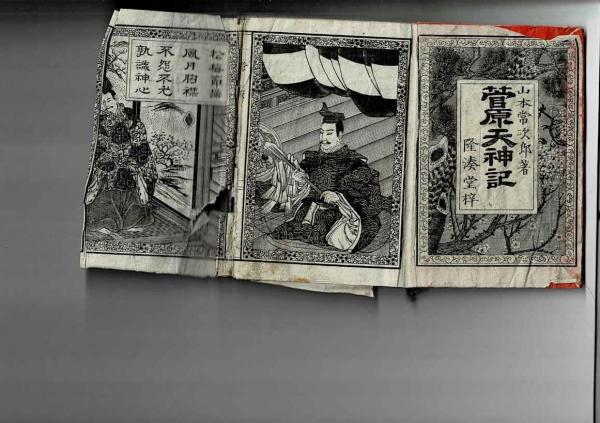 山本常次郎著
菅原天神記
隆湊堂梓
松梅節操
風月胸襟
不怨不尤
孰識神心